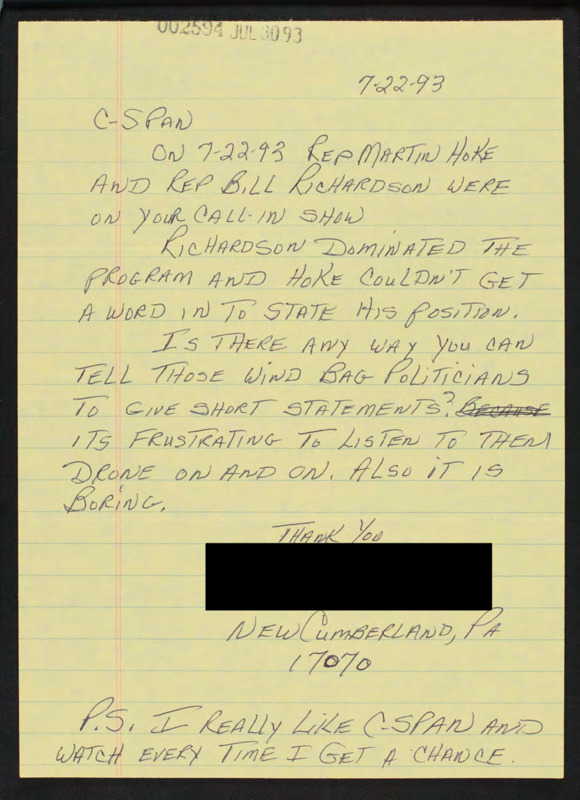 002594 JUL 30 93
7-22-93
C-SPAN
ON 7-22-93 REP MARTIN HOKE
AND REP BILL RICHARDSON WERE
ON YOUR CALL-IN SHOW
RICHARDSON DOMINATED THE
PROGRAM AND HOKE COULDN'T GET
A WORD IN TO STATE HIS POSITION.
IS THERE ANY WAY YOU CAN
TELL THOSE WIND BAG POLITICIANS
TO GIVE SHORT STATEMENTS? BECAUSE
ITS FRUSTRATING TO LISTEN TO THEM
DRONE ON AND ON. ALSO IT IS
BORING.
THANK YOU
NEW CUMBERLAND, PA
17070
P.S. I REALLY LIKE C-SPAN AND
WATCH EVERY TIME I GET A CHANCE.